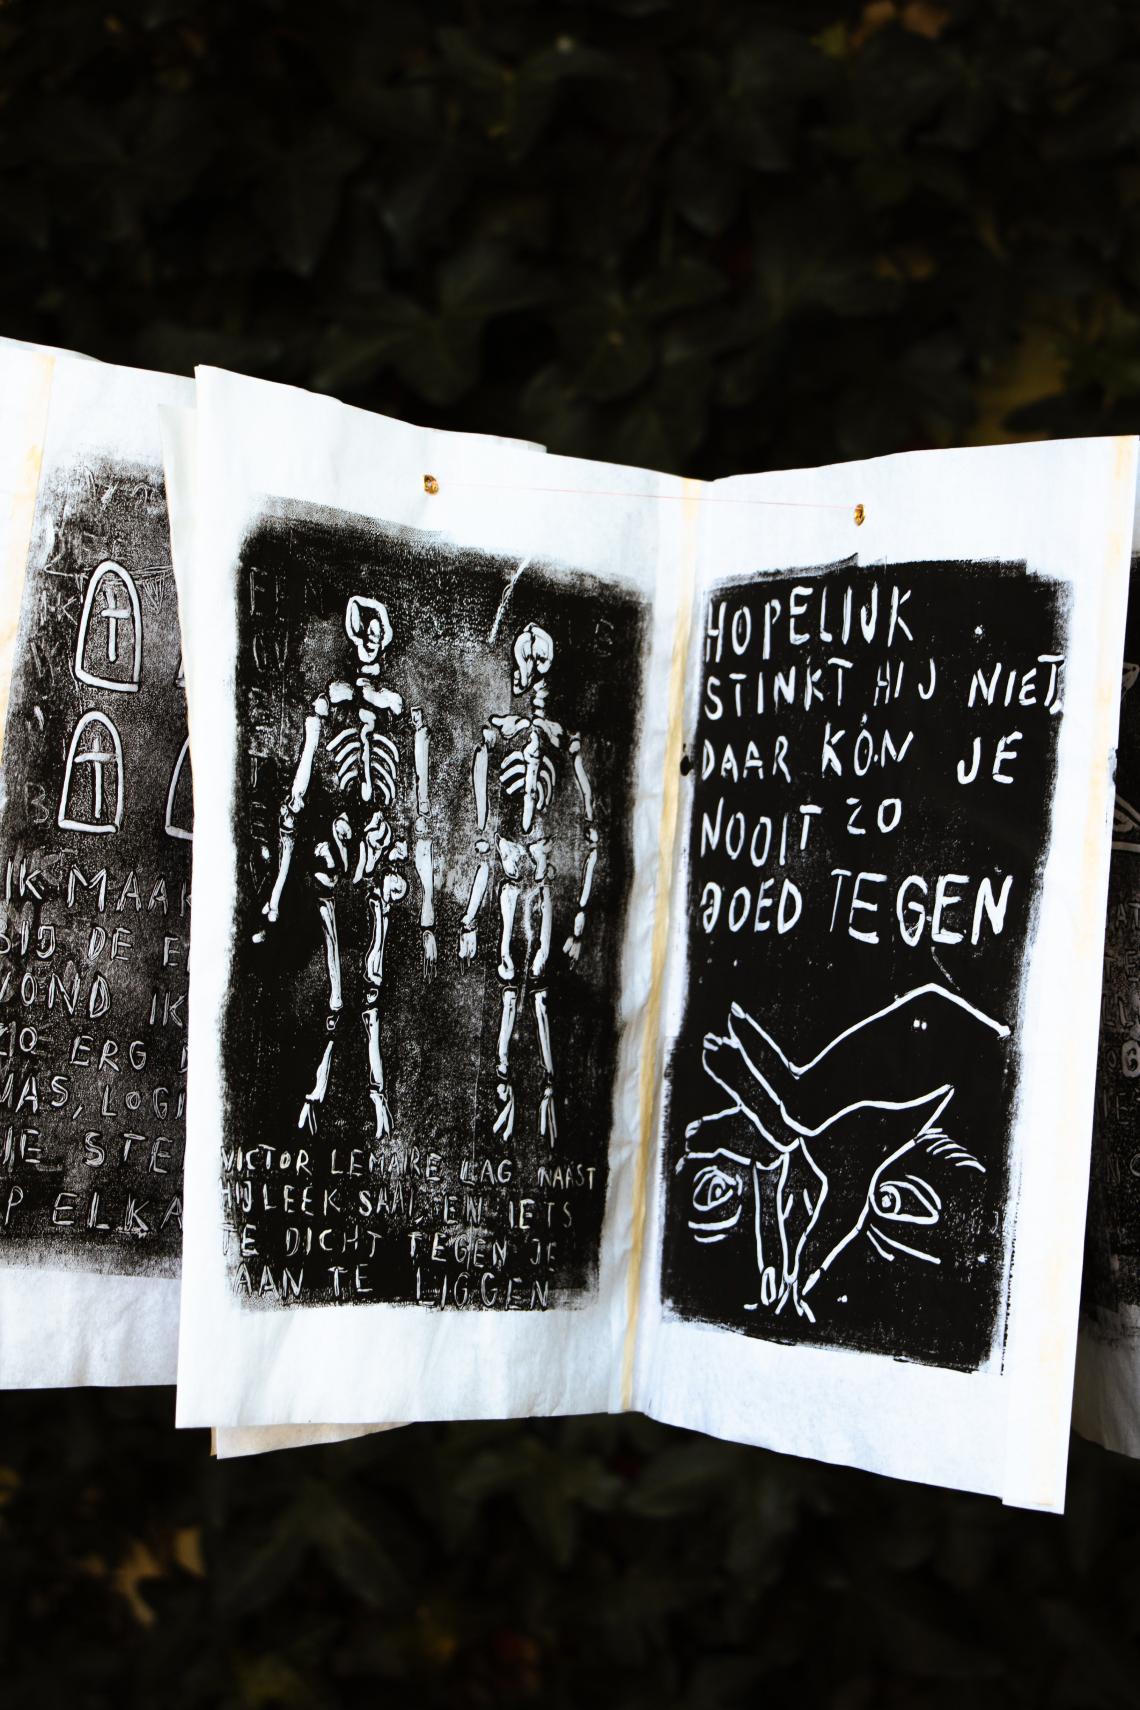 IK MAAK
BIJ DE
VOND IK
ZO ERG
WAS, LOGI
JE STE
P ELKA
VICTOR LEMAIRE LAG NAAST
HIJ LEEK SAAI, EN IETS
TE DICHT TEGEN JE
AAN TE LIGGEN
HOPELIJK
STINKT HIJ NIET,
DAAR KÓN JE
NOOIT ZO
GOED TEGEN